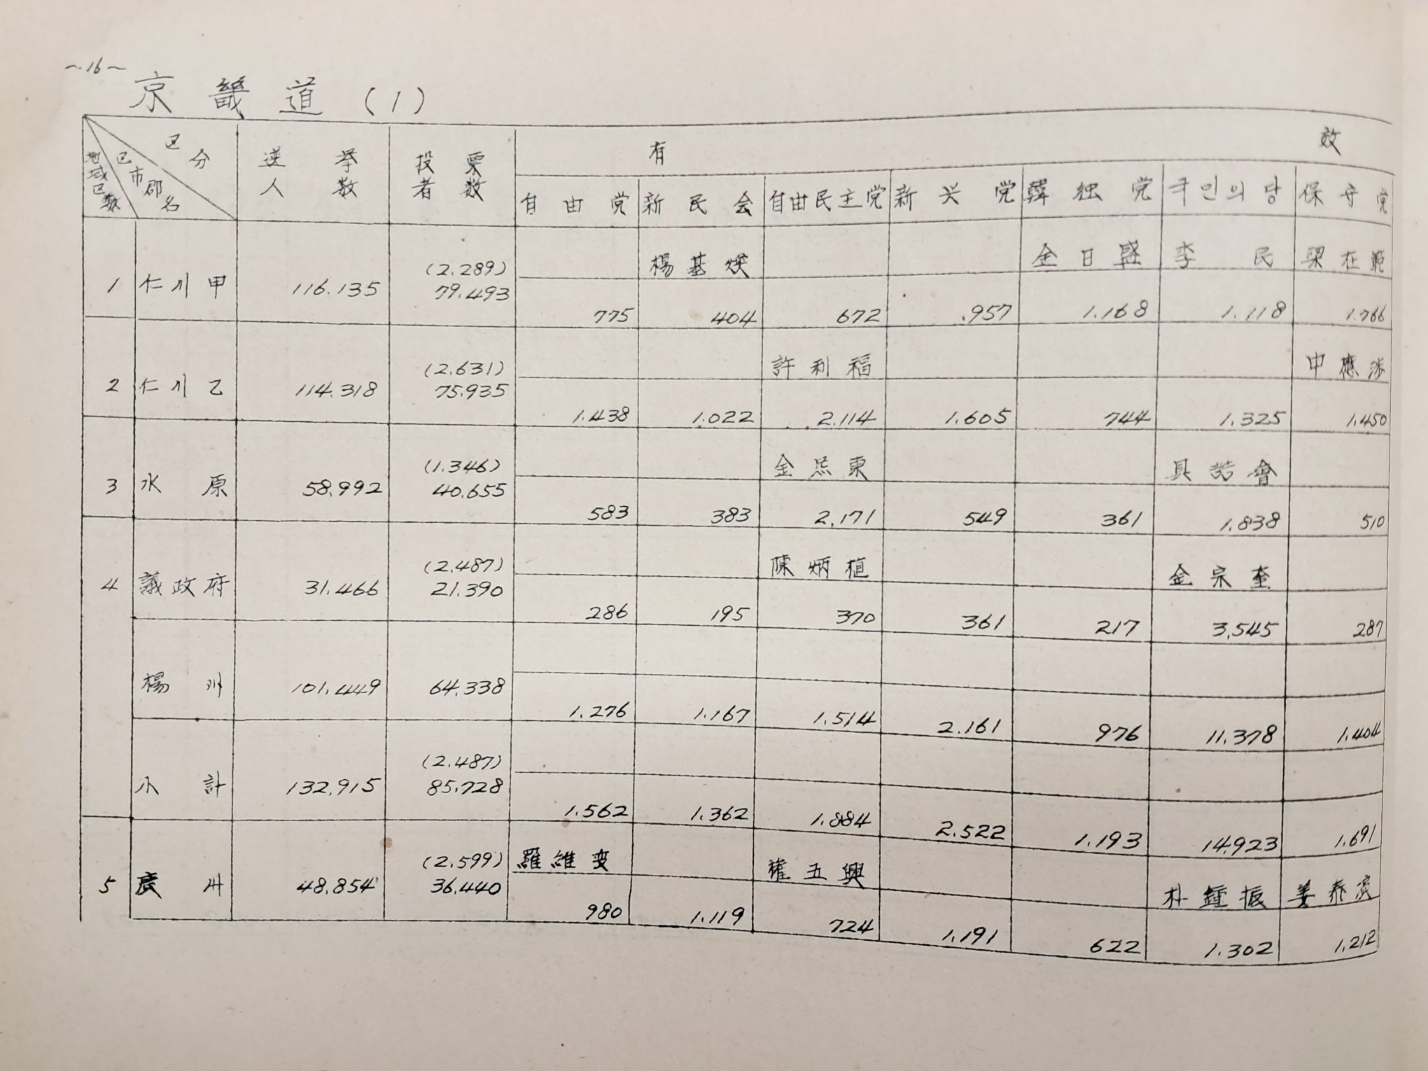 ~16~
京畿道 (1)
区分
区市郡名
地域区数
選挙人数
投票者数
有効
自由党 新民会 自由民主党 新兴党 韓独党 국민의당 保守党
楊基煐 金日盛 李民 梁在範
1 仁川甲 116.135 (2.289) 79.493 775 404 672 .957 1.168 1.118 1.766
許利福 申應涉
2 仁川乙 114.318 (2.631) 75.935 1.438 1.022 2.114 1.605 744 1.325 1.450
金東 具會
3 水原 58.992 (1.346) 40.655 583 383 2.171 549 361 1.838 510
陳炳植 金宗奎
4 議政府 31.466 (2.487) 21.390 286 195 370 361 217 3.545 287
楊州 101.449 64.338 1.276 1.167 1.514 2.161 976 11.378 1.404
小計 132.915 (2.487) 85.728 1.562 1.362 1.884 2.522 1.193 14.923 1.691
羅維 權五興 朴鍾振 姜泰
5 廣州 48.854 (2.599) 36.440 980 1.119 724 1.191 622 1.302 1.212